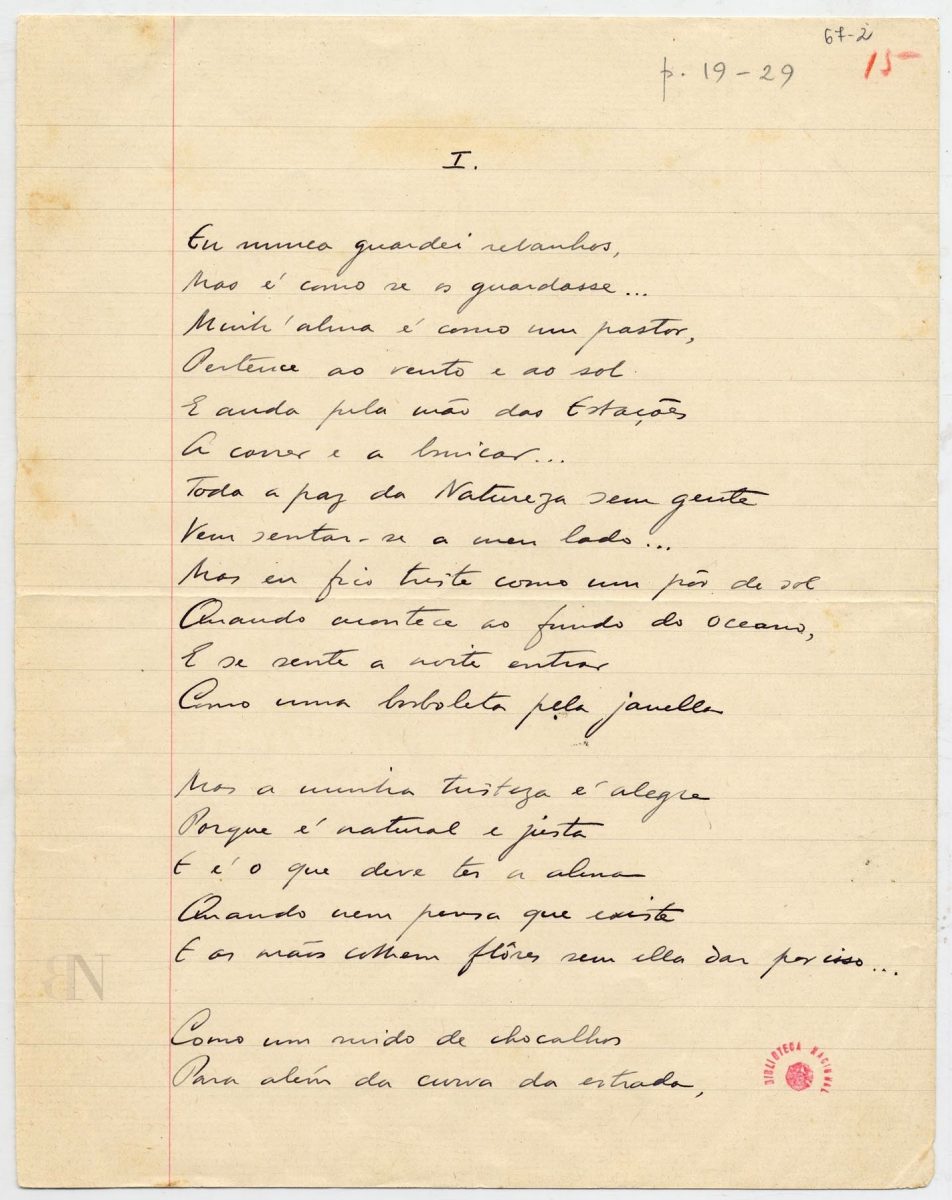 67-2
p. 19-29
15
I.
Eu nunca guardei rebanhos,
Mas é como se os guardasse...
Minh'alma é como um pastor,
Pertence ao vento e ao sol
E anda pela mão das Estações
A correr e a brincar...
Toda a paz da Natureza sem gente
Vem sentar-se a meu lado...
Mas eu fico triste como um pôr de sol
Quando acontece ao fundo do oceano,
E se sente a noite entrar
Como uma borboleta pela janella
Mas a minha tristeza é alegre
Porque é natural e justa
E é o que deve ter a alma
Quando nem pensa que existe
E as mãos colhem flôres sem ella dar por isso...
BN
Como um ruido de chocalhos
Para além da curva da estrada,
BIBLIOTECA NACIONAL